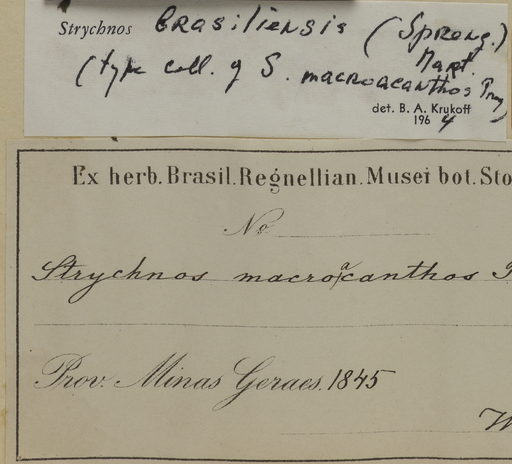 Strychnos brasiliensis (Spreng.)
Mart.
(type coll. of S. macroacanthos Prog)
det. B. A. Krukoff
1964
Ex herb. Brasil. Regnellian. Musei bot. Sto
No
Strychnos macroacanthos P
Prov. Minas Geraes. 1845
W